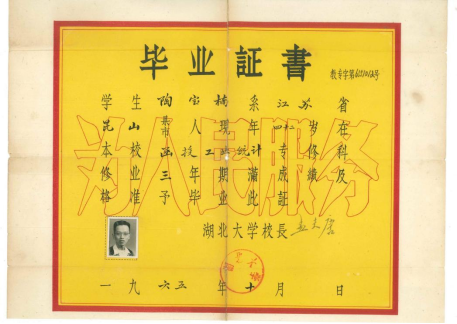 毕业証書
教专字第 号
学生陶宝楠系江苏省
昆山县市人现年四二岁在
本校函授工业统计专修科
修业三年期满成绩及
格准予毕业此証
湖北大学校長
一九六五年十月 日
为人民服务